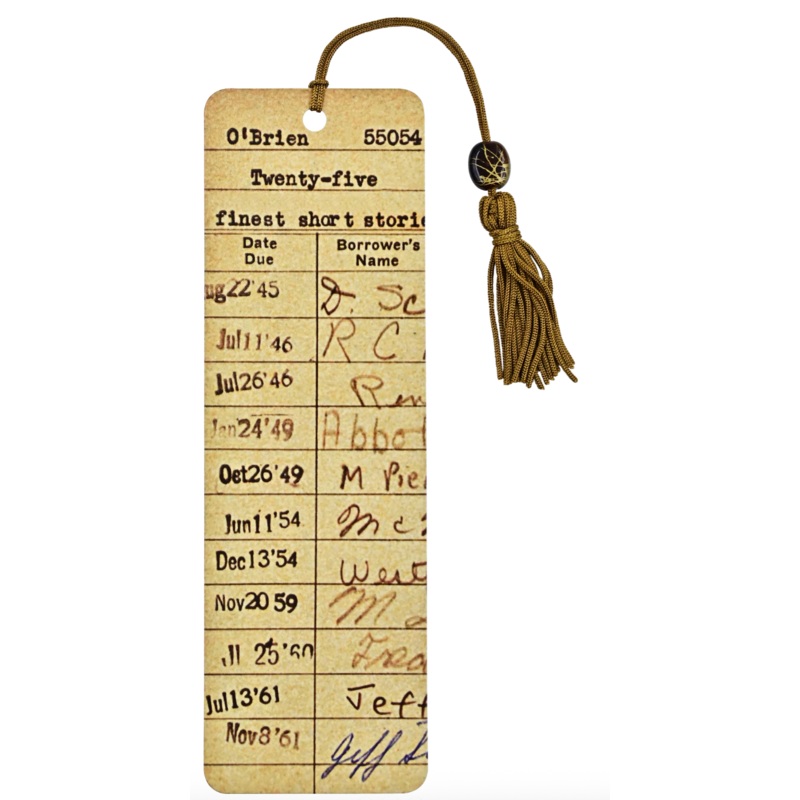 O'Brien 55054
Twenty-five
finest short storie
Date Due Borrower's Name
ug 22 '45 D. Sc
Jul 11 '46 R C
Jul 26 '46 Ren
Jan 24 '49 Abbot
Oct 26 '49 M Pie
Jun 11 '54 McN
Dec 13 '54 West
Nov 20 59 M
Jl 25 '60 Fred
Jul 13 '61 Jeff
Nov 8 '61 Jeff